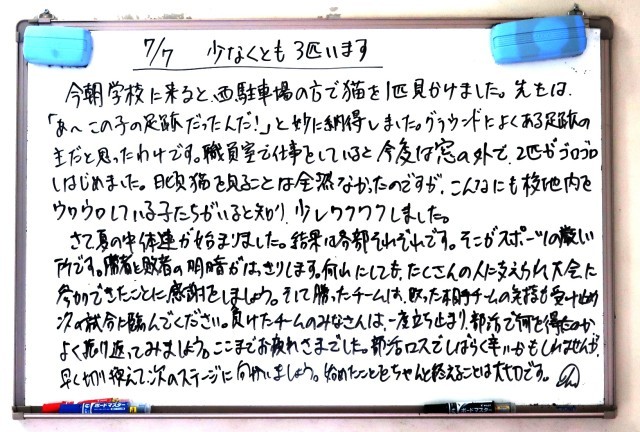 7/7 少なくとも3匹います
今朝学校に来ると、西駐車場の方で猫を1匹見かけました。先生は、
「あ〜この子の足跡だったんだ!」と妙に納得しました。グラウンドによくある足跡の
主だと思ったわけです。職員室で仕事をしていると今度は窓の外で、2匹がゴロゴロ
しはじめました。日頃猫を見ることは全然なかったのですが、こんなにも校地内を
ウロウロしている子たちがいると知り、少しワクワクしました。
さて夏の中体連が始まりました。結果は各部それぞれです。そこがスポーツの厳しい
所です。勝者と敗者の明暗がはっきりします。何れにしても、たくさんの人に支えられ大会に
参加できたことに感謝をしましょう。そして勝ったチームは、敗った相手チームの気持も受け止め
次の試合に臨んでください。負けたチームのみなさんは、一度立ち止まり、部活で何を得たのか
よく振り返ってみましょう。ここまでお疲れさまでした。部活ロスでしばらく辛いかもしれませんが、
早く切り換えて次のステージに向かいましょう。始めたことをちゃんと終えることは大切です。
ボードマスター
ボードマスター